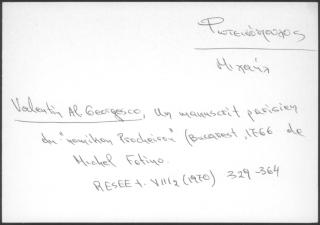 Φωτεινόπουλος
Μιχαήλ
Valentin Al. Georgesco, Un manuscrit parisien
du "nomikon Procheiron" (Bucarest, 1766 de
Michel Fotino.
RESEE t. VIII/2 (1970) 329-364